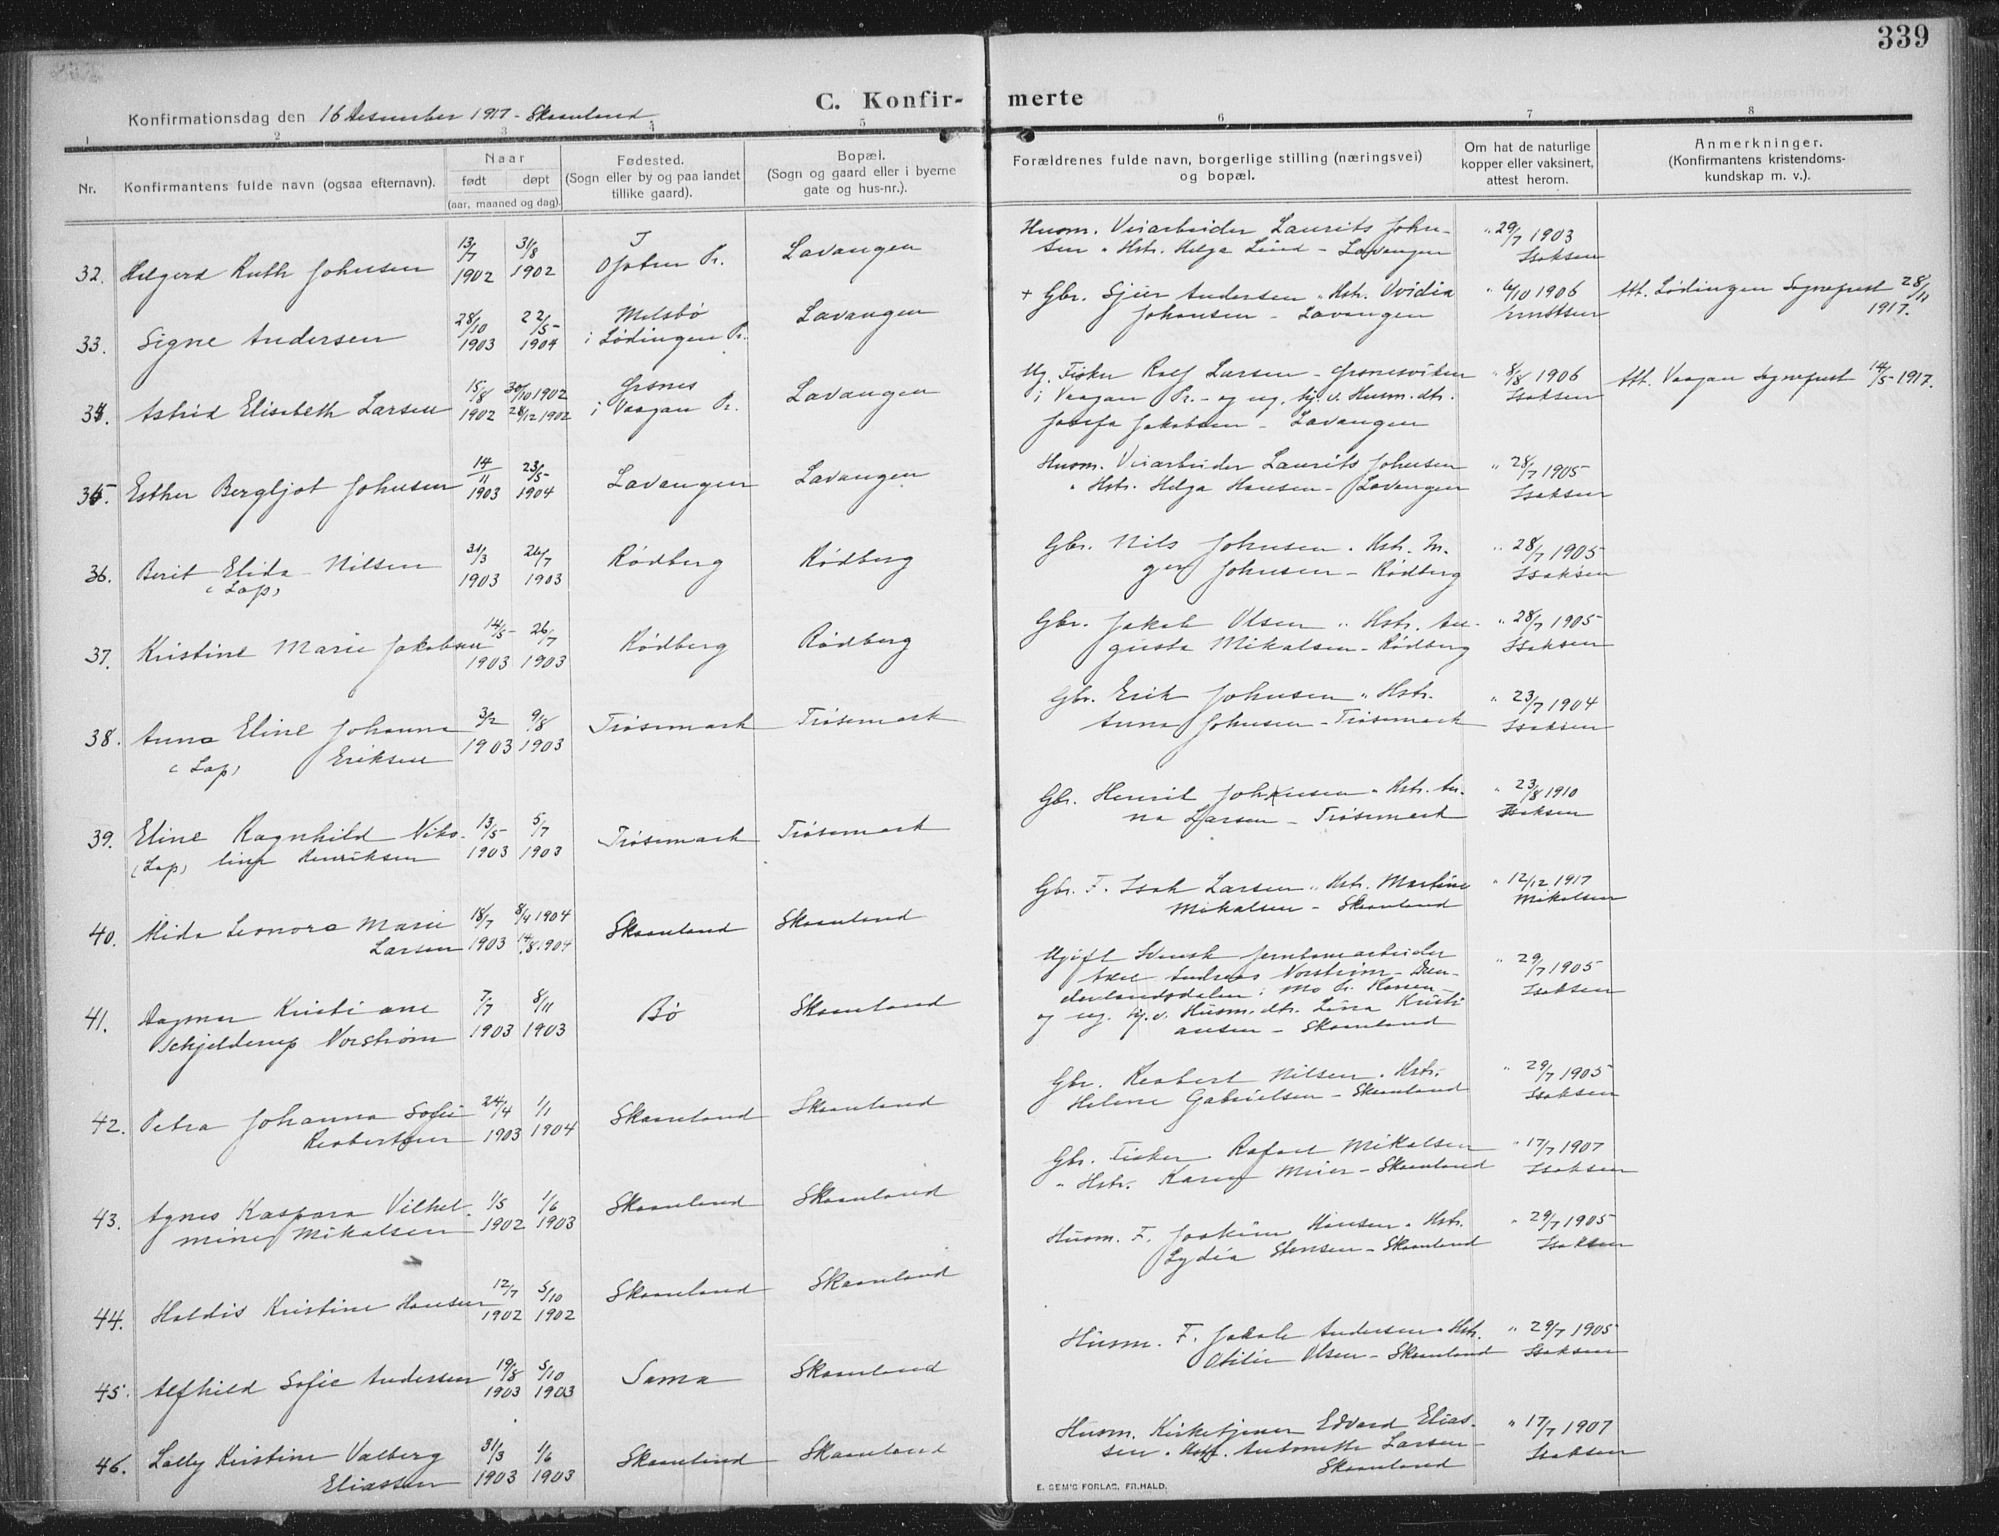 339
C. Konfir- merte
Konfirmationsdag den 16 Desember 1917 - Skaanland
1 2 3 4 5 6 7 8
Nr.
Konfirmantens fulde navn (ogsaa efternavn).
Naar
født døpt
(aar, maaned og dag).
Fødested.
(Sogn eller by og paa landet
tillike gaard).
Bopæl.
(Sogn og gaard eller i byerne
gate og hus-nr.).
Forældrenes fulde navn, borgerlige stilling (næringsvei)
og bopæl.
Om hat de naturlige
kopper eller vaksinert,
attest herom.
Anmerkninger.
(Konfirmantens kristendoms-
kundskap m. v.).
32. Helgerd Ruth Johnsen 13/7 1902 31/8 1902 Ofoten Pr. Lavangen
Husm. Veiarbeider Laurits John-
sen " Hstr. Helga Lund - Lavangen
" 29/7 1903
Isaksen
33. Signe Andersen 28/10 1903 22/5- 1904 Melsbö
i Lødingen Pr. Lavangen
+ Gbr. Sjur Andersen " Hstr. Ovidia
Johansen - Lavangen
" 6/10 1906
Ernstsen
Att. Lødingen Sogneprest 28/11
1917.
34. Astrid Elisabeth Larsen 15/8 1902 30/10 1902
28/12 1902
Grsnes
i Vaagan Pr. Lavangen
Ug. Fisker Rolf Larsen - Grsnesviken
i Vaagan Pr. - og ug. hj. v. Husm. dtr.
Josefa Jakobsen - Lavangen
" 8/8 1906
Isaksen
Att. Vaagan Sogneprest 14/5- 1917.
35. Esther Bergljot Johnsen 14/11 1903 23/5- 1904 Lavangen Lavangen
Husm. Veiarbeider Laurits Johnsen
" Hstr. Helga Hansen - Lavangen
" 28/7 1905
Isaksen
36. Berit Elida Nilsen
(Lap)
31/3 1903 26/7 1903 Rødberg Rødberg
Gbr. Nils Johnsen " Hstr. In-
ger Johnsen - Rødberg
" 28/7 1905
Isaksen
37. Kristine Marie Jakobsen 14/5- 1903 26/7 1903 Rødberg Rødberg
Gbr. Jakob Olsen " Hstr. Au-
gusta Mikalsen - Rødberg
" 28/7 1905
Isaksen
38. Anna Eline Johanna
(Lap) Eriksen
3/2 1903 9/8 1903 Trøsemark Trøsemark
Gbr. Erik Johnsen " Hstr.
Anna Johnsen - Trøsemark
" 23/7 1904
Isaksen
39. Eline Ragnhild Niko-
(Lap) line Henriksen
13/5 1903 5/7 1903 Trøsemark Trøsemark
Gbr. Henrik Johnsen " Hstr. An-
na Larsen - Trøsemark
" 23/8 1910
Isaksen
40. Alida Leonora Marie
Larsen
18/7 1903 8/4 1904
14/8 1904
Skaanland Skaanland
Gbr. F. Isak Larsen " Hstr. Martine
Mikalsen - Skaanland
" 12/12 1917
Mikalsen
41. Dagmar Kristiane
Schjelderup Norstrøm
7/7 1903 8/11 1903 Bö Skaanland
Ugift Svensk jernbanearbeider
Axel Andreas Norstrøm - Dun-
derlandsdalen i Mo
og ug. hj. v. Husm. dtr. Lina Kristi
ansen - Skaanland
" 29/7 1905
Isaksen
42. Petra Johanna Sofie
Reabertsen
24/4 1903 1/1 1904 Skaanland Skaanland
Gbr. Reabert Nilsen " Hstr.
Helene Gabrielsen - Skaanland
" 29/7 1905
Isaksen
43. Agnes Kaspara Vilhel-
mine Mikalsen
1/5 1902 1/6 1903 Skaanland Skaanland
Gbr. Fisker Rafael Mikalsen
" Hstr. Karen Meier - Skaanland
" 17/7 1907
Isaksen
44. Haldis Kristine Hansen 12/7 1902 5/10 1902 Skaanland Skaanland
Husm. F. Joakim Hansen " Hstr.
Lydia Stensen - Skaanland
" 29/7 1905
Isaksen
45. Alfhild Sofie Andersen 19/8 1903 5/10 1903 Sama Skaanland
Husm. F. Jakob Andersen " Hstr.
Otilie Olsen - Skaanland
" 29/7 1905
Isaksen
46. Lally Kristine Valberg
Eliassen
31/3 1903 1/6 1903 Skaanland Skaanland
Husm. Kirketjener Edvard Elias-
sen " Hstr. Antonette Larsen -
Skaanland
" 17/7 1907
Isaksen
E. SEM'S FORLAG, FR.HALD.